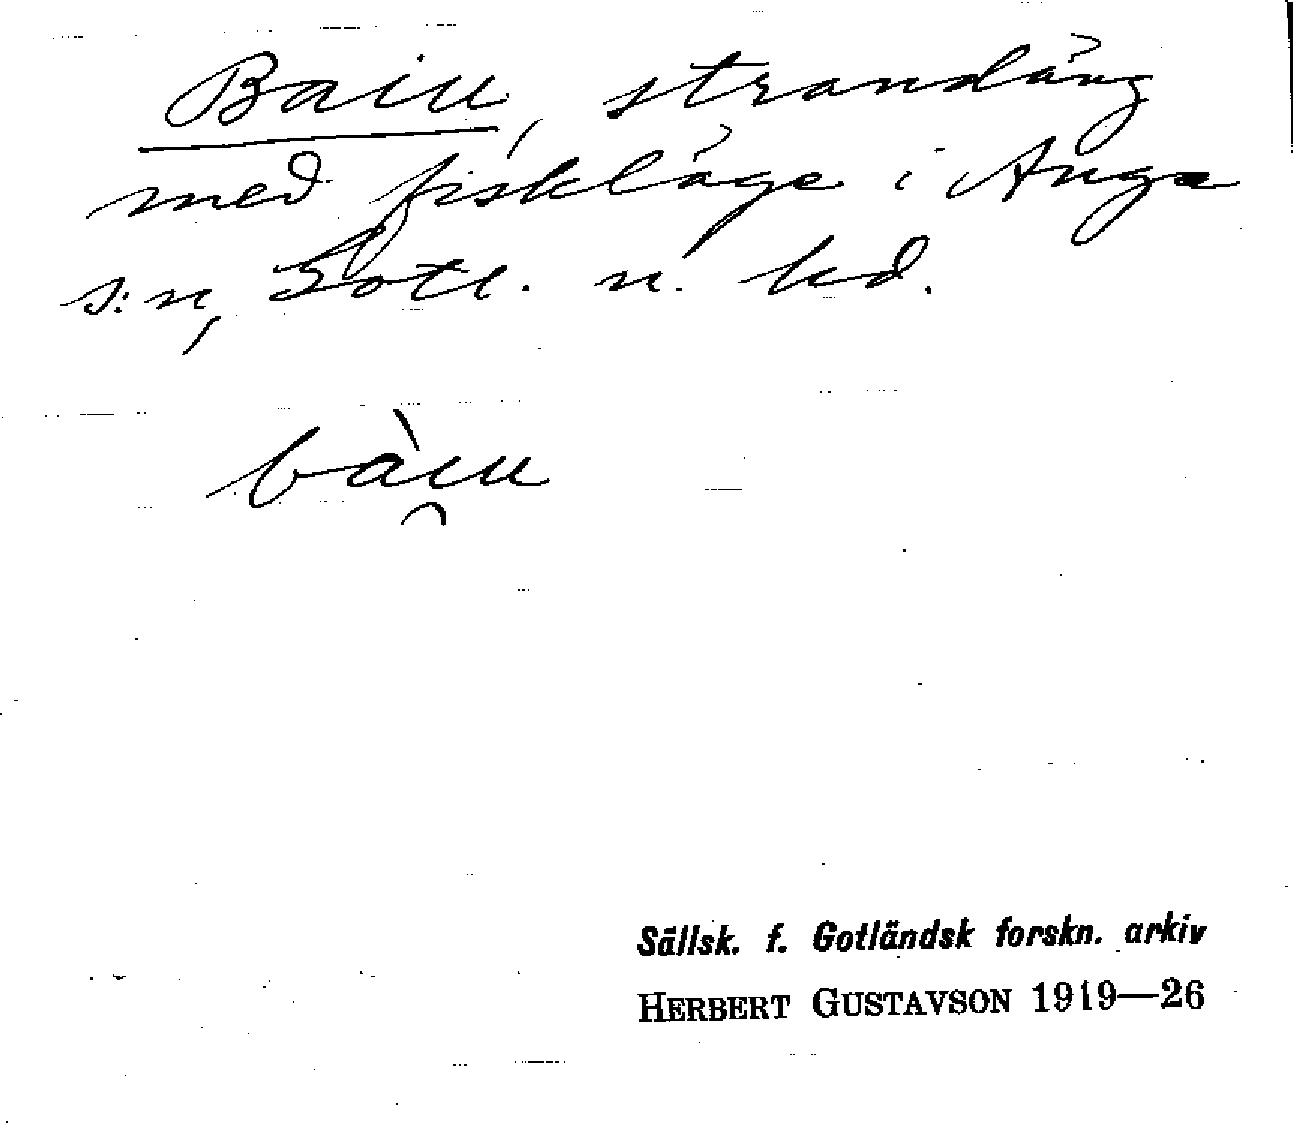 Bain, strandäng
med fiskläge i Anga
s:n, Gotl. n. hd.
bài̯n
Sällsk. f. Gotländsk forskn. arkiv
HERBERT GUSTAVSON 1919—26